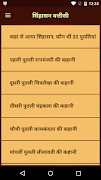 सिंहासन बत्तीसी
कहां से आया सिंहासन, कौन थीं 32 पुतलियां
पहली पुतली रत्नमंजरी की कहानी
दूसरी पुतली चित्रलेखा की कहानी
तीसरी पुतली चंद्रकला की कहानी
चौथी पुतली कामकंदला की कहानी
पांचवीं पुतली लीलावती की कहानी